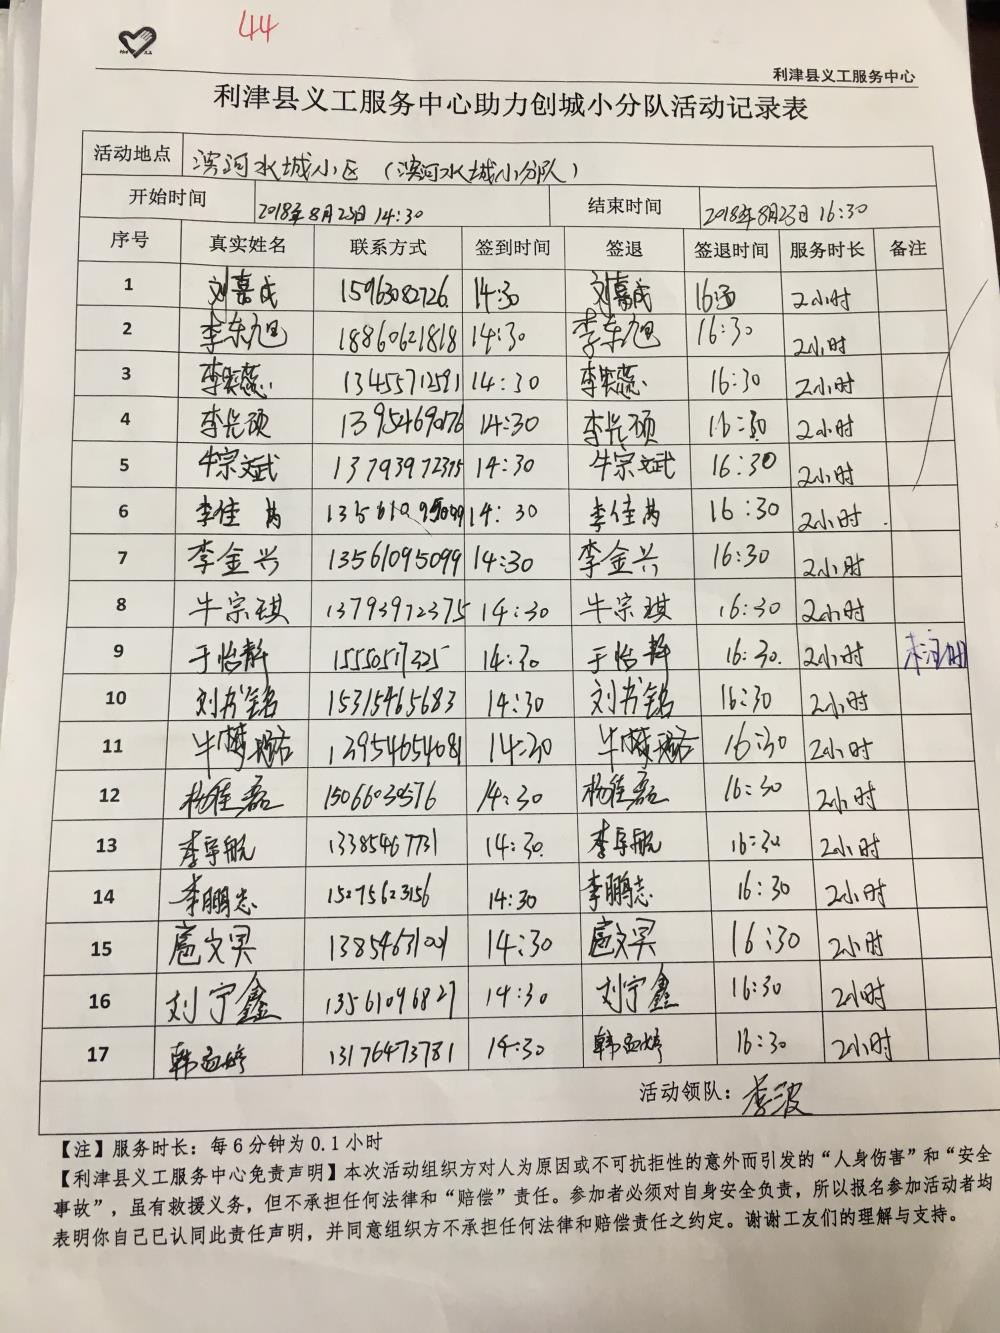 44
利津县义工服务中心
利津县义工服务中心助力创城小分队活动记录表
活动地点 滨河水城小区（滨河水城小分队）
开始时间 2018年8月23日 14:30 结束时间 2018年8月23日 16:30
序号 真实姓名 联系方式 签到时间 签退 签退时间 服务时长 备注
1 刘嘉成 15963082726 14:30 刘嘉成 16:30 2小时
2 李东旭 18860621818 14:30 李东旭 16:30 2小时
3 13455712591 14:30 16:30 2小时
4 李光硕 13954690176 14:30 李光硕 16:30 2小时
5 牛宗斌 13793972375 14:30 牛宗斌 16:30 2小时
6 李佳芮 14:30 李佳芮 16:30 2小时
7 李金兴 13561095099 14:30 李金兴 16:30 2小时
8 牛宗琪 13793972375 14:30 牛宗琪 16:30 2小时
9 于怡静 15550517325 14:30 于怡静 16:30 2小时
10 刘书铭 15315465683 14:30 刘书铭 16:30 2小时
11 13954654081 14:30 16:30 2小时
12 杨佳磊 1506603576 14:30 杨佳磊 16:30 2小时
13 李宇航 13385467731 14:30 李宇航 16:30 2小时
14 李鹏志 15275623156 14:30 李鹏志 16:30 2小时
15 扈文昊 13854631001 14:30 扈文昊 16:30 2小时
16 刘宁鑫 13561096827 14:30 刘宁鑫 16:30 2小时
17 韩孟婷 13176473781 14:30 韩孟婷 16:30 2小时
活动领队：李波
【注】服务时长：每6分钟为0.1小时
【利津县义工服务中心免责声明】本次活动组织方对人为原因或不可抗拒性的意外而引发的“人身伤害”和“安全
事故”，虽有救援义务，但不承担任何法律和“赔偿”责任。参加者必须对自身安全负责，所以报名参加活动者均
表明你自己已认同此责任声明，并同意组织方不承担任何法律和赔偿责任之约定。谢谢工友们的理解与支持。